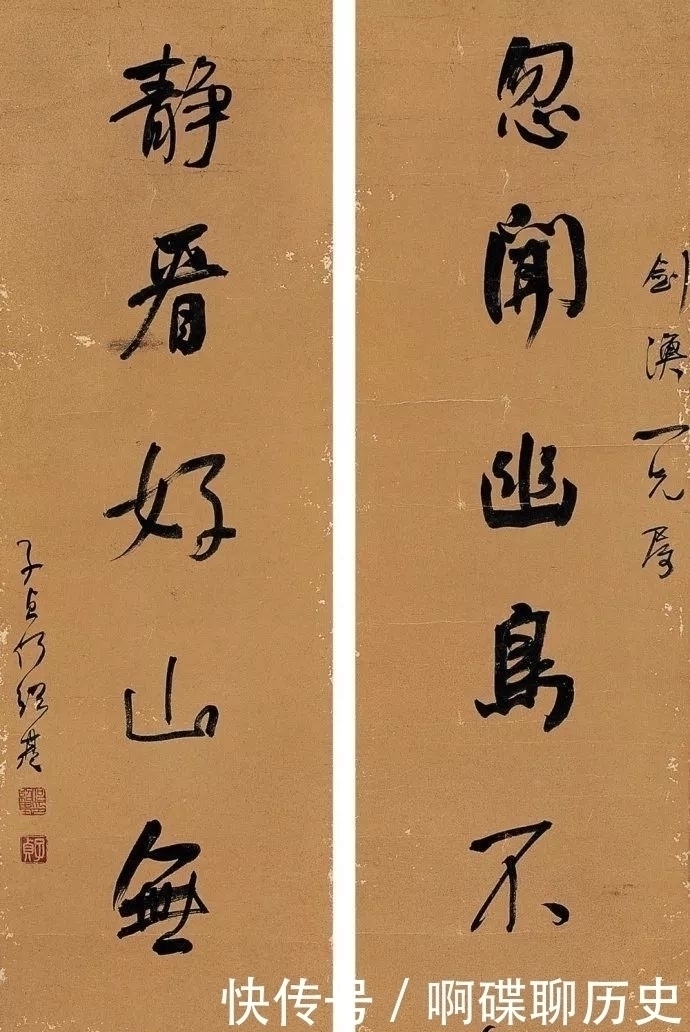 忽闻幽鳥不
剑溪一兄属
静看好山無
子貞何紹基
子貞
快传号 / 啊碟聊历史